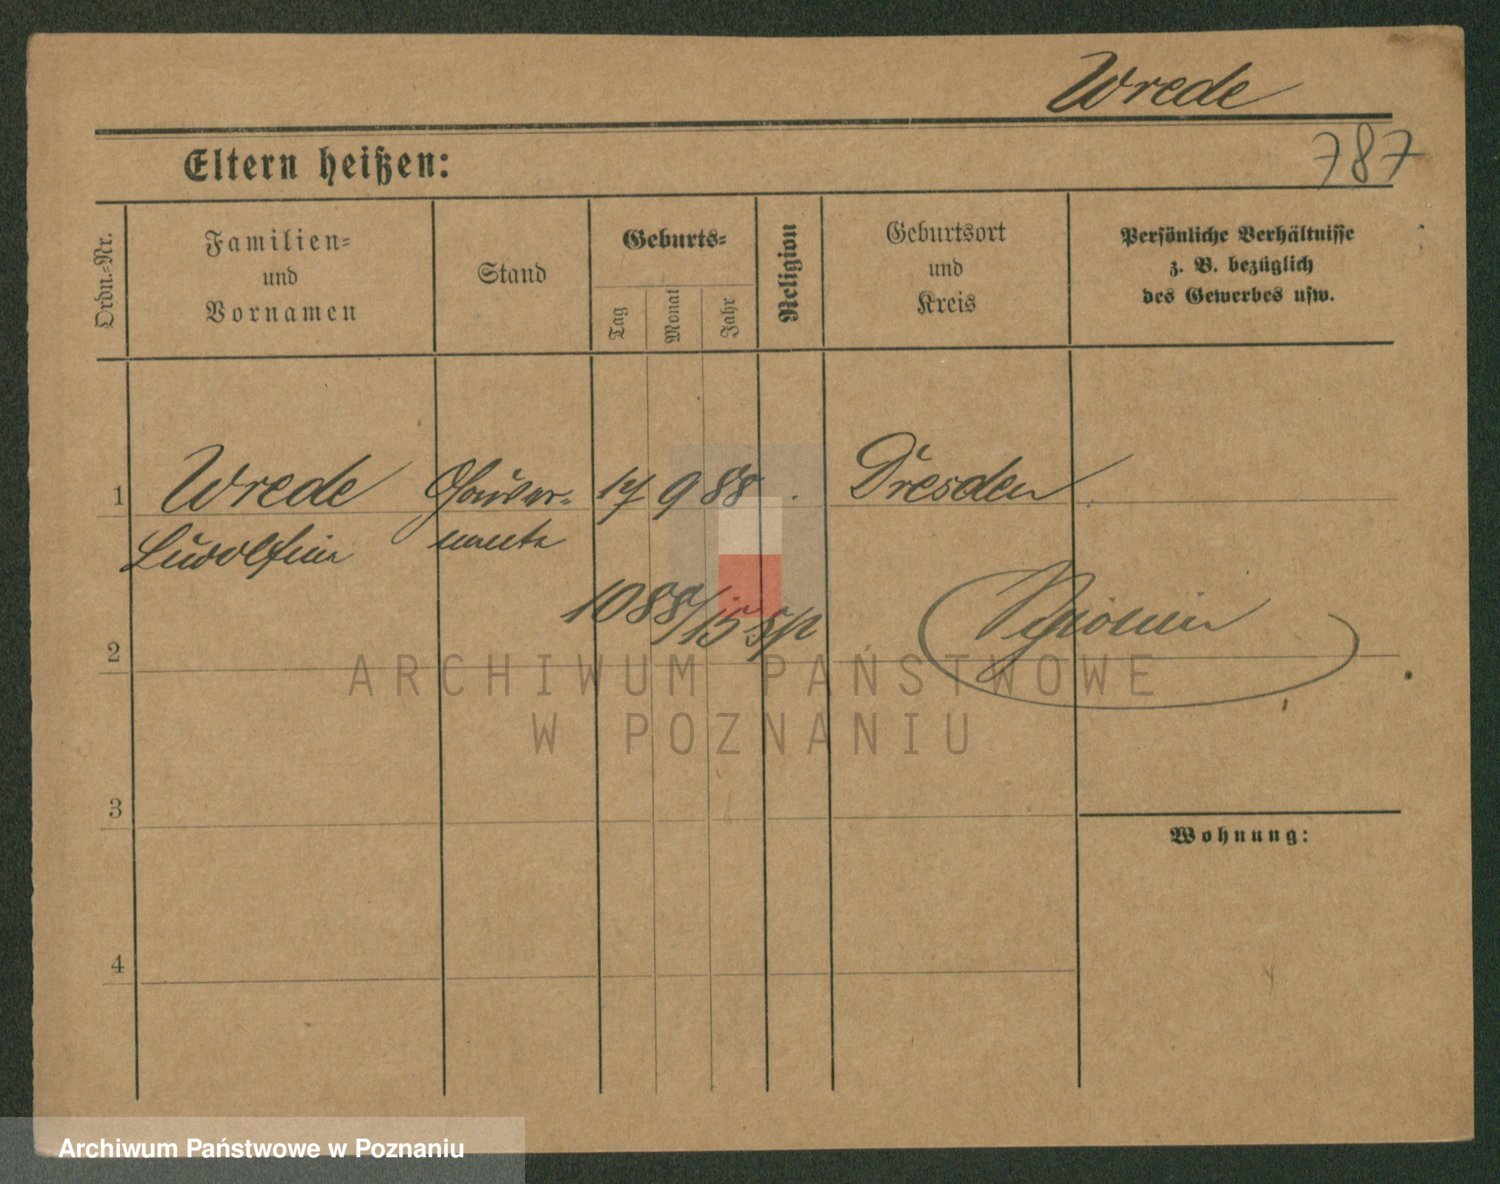 Wrede
787
Eltern heißen:
Ordn.-Nr.
Familien-
und
Vornamen
Stand
Geburts-
Tag
Monat
Jahr
Religion
Geburtsort
und
Kreis
Persönliche Verhältnisse
z. B. bezüglich
des Gewerbes usw.
1 Wrede Gouver- 17 9 88 Dresden
nante
1088/15
2
3
Wohnung:
4
ARCHIWUM PAŃSTWOWE
W POZNANIU
Archiwum Państwowe w Poznaniu